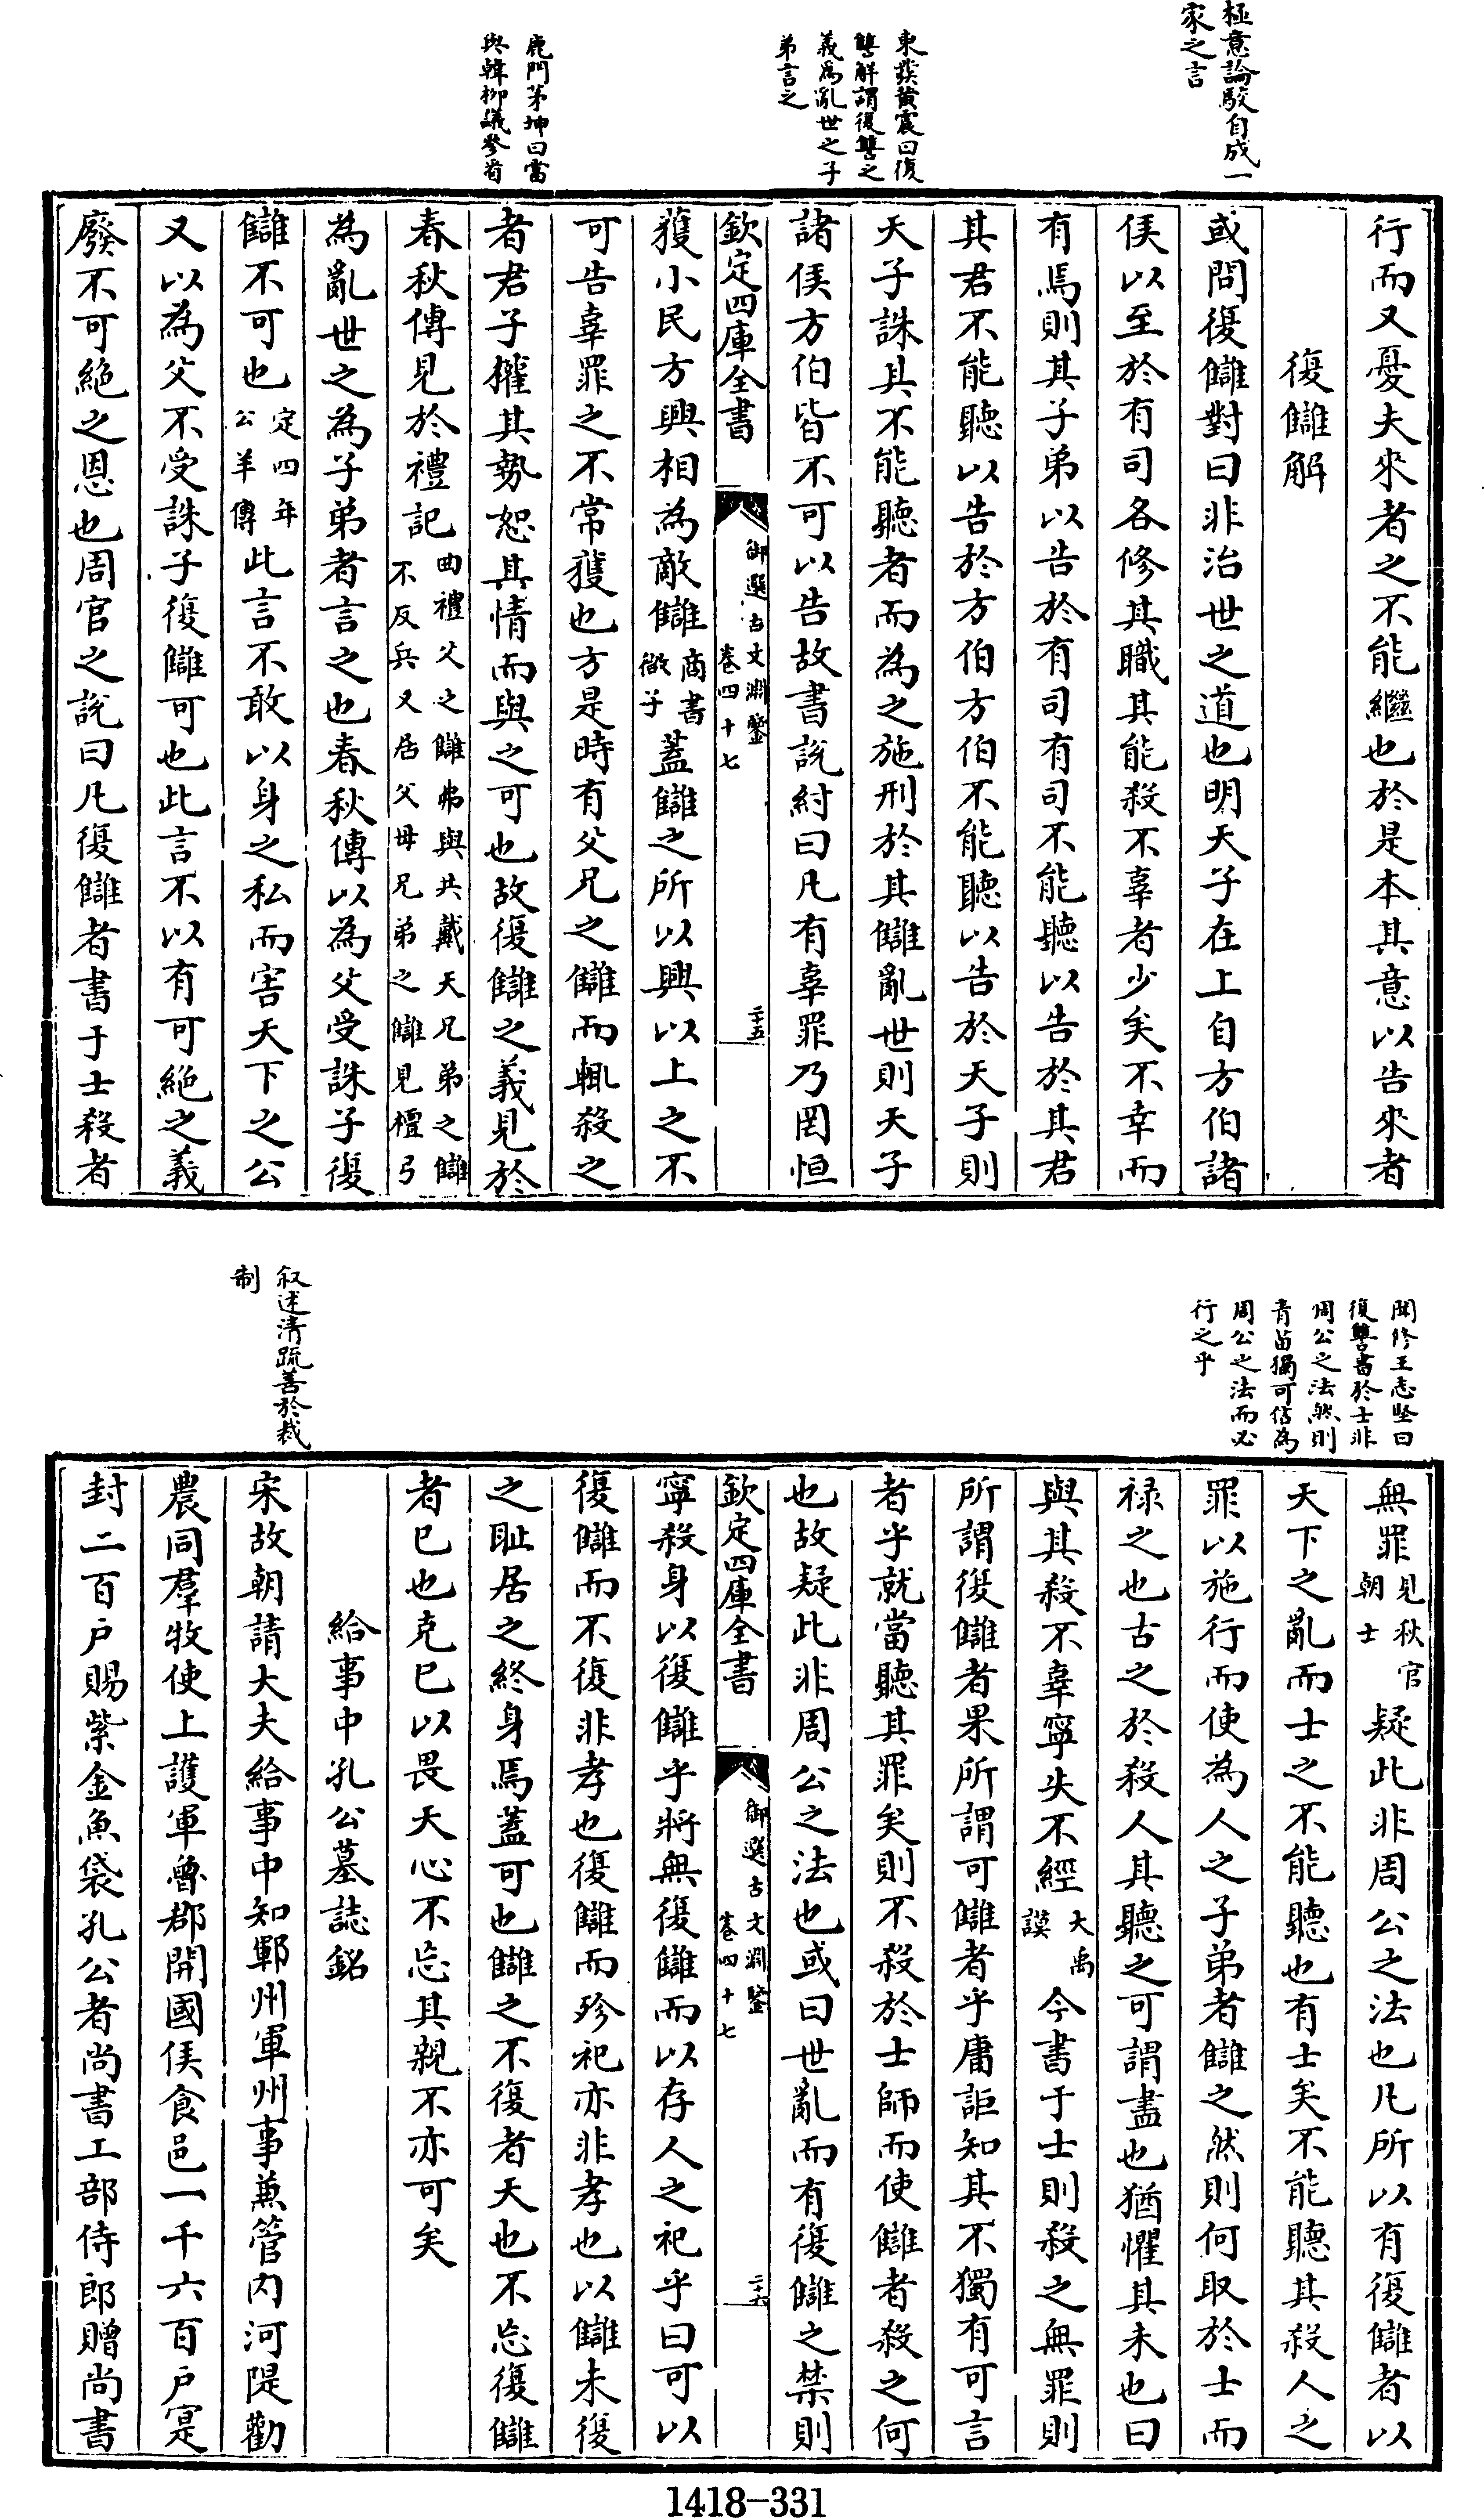 極意論駁自成一
家之言
東發黄震曰復
讐解謂復讐之
義為亂世之子
弟言之
鹿門茅坤曰當
與韓柳議參看
行而又憂夫來者之不能繼也於是本其意以告來者
復讎解
或問復讎對曰非治世之道也明天子在上自方伯諸
侯以至於有司各修其職其能殺不辜者少矣不幸而
有焉則其子弟以告於有司有司不能聽以告於其君
其君不能聽以告於方伯方伯不能聽以告於天子則
天子誅其不能聽者而為之施刑於其讎亂世則天子
諸侯方伯皆不可以告故書說紂曰凡有辜罪乃罔恒
欽定四庫全書
御選古文淵鑒
卷四十七
二十五
獲小民方興相為敵讎商書微子蓋讎之所以興以上之不
可告辜罪之不常獲也方是時有父兄之讎而輒殺之
者君子權其勢恕其情而與之可也故復讎之義見於
春秋傳見於禮記曲禮父之讎弗與共戴天兄弟之讎不反兵又居父母兄弟之讎見檀弓
為亂世之為子弟者言之也春秋傳以為父受誅子復
讎不可也定四年公羊傳此言不敢以身之私而害天下之公
又以為父不受誅子復讎可也此言不以有可絕之義
廢不可絕之恩也周官之說曰凡復讎者書于士殺者
聞修王志堅曰
復讐書於士非
周公之法然則
青苗獨可信為
周公之法而必
行之乎
叙述清疏善於裁
制
無罪見秋官朝士疑此非周公之法也凡所以有復讎者以
天下之亂而士之不能聽也有士矣不能聽其殺人之
罪以施行而使為人之子弟者讎之然則何取於士而
禄之也古之於殺人其聽之可謂盡也猶懼其未也曰
與其殺不辜寧失不經大禹謨今書于士則殺之無罪則
所謂復讎者果所謂可讎者乎庸詎知其不獨有可言
者乎就當聽其罪矣則不殺於士師而使讎者殺之何
也故疑此非周公之法也或曰世亂而有復讎之禁則
欽定四庫全書
御選古文淵鑒
卷四十七
二十六
寧殺身以復讎乎將無復讎而以存人之祀乎曰可以
復讎而不復非孝也復讎而殄祀亦非孝也以讎未復
之耻居之終身焉蓋可也讎之不復者天也不忘復讎
者已也克已以畏天心不忘其親不亦可矣
給事中孔公墓誌銘
宋故朝請大夫給事中知鄆州軍州事兼管内河隄勸
農同羣牧使上護軍魯郡開國侯食邑一千六百户寔
封二百户賜紫金魚袋孔公者尚書工部侍郎贈尚書
1418-331